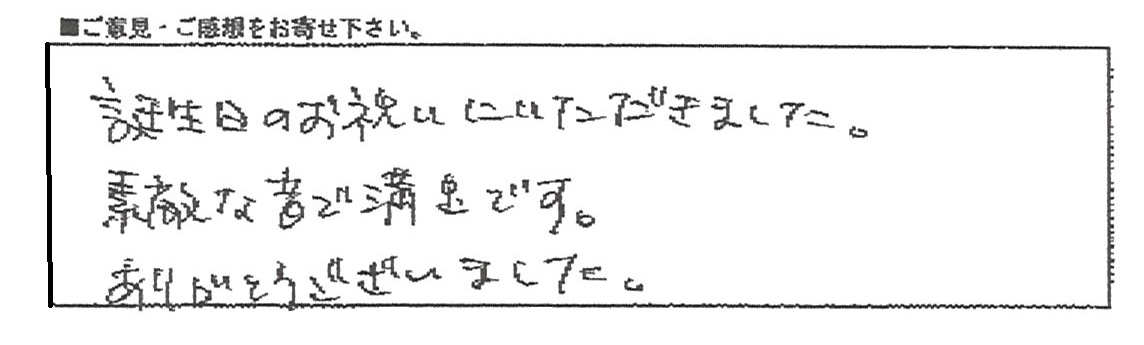 ■ご意見・ご感想をお寄せ下さい。
誕生日のお祝いにいただきました。
素敵な音で満足です。
ありがとうございました。